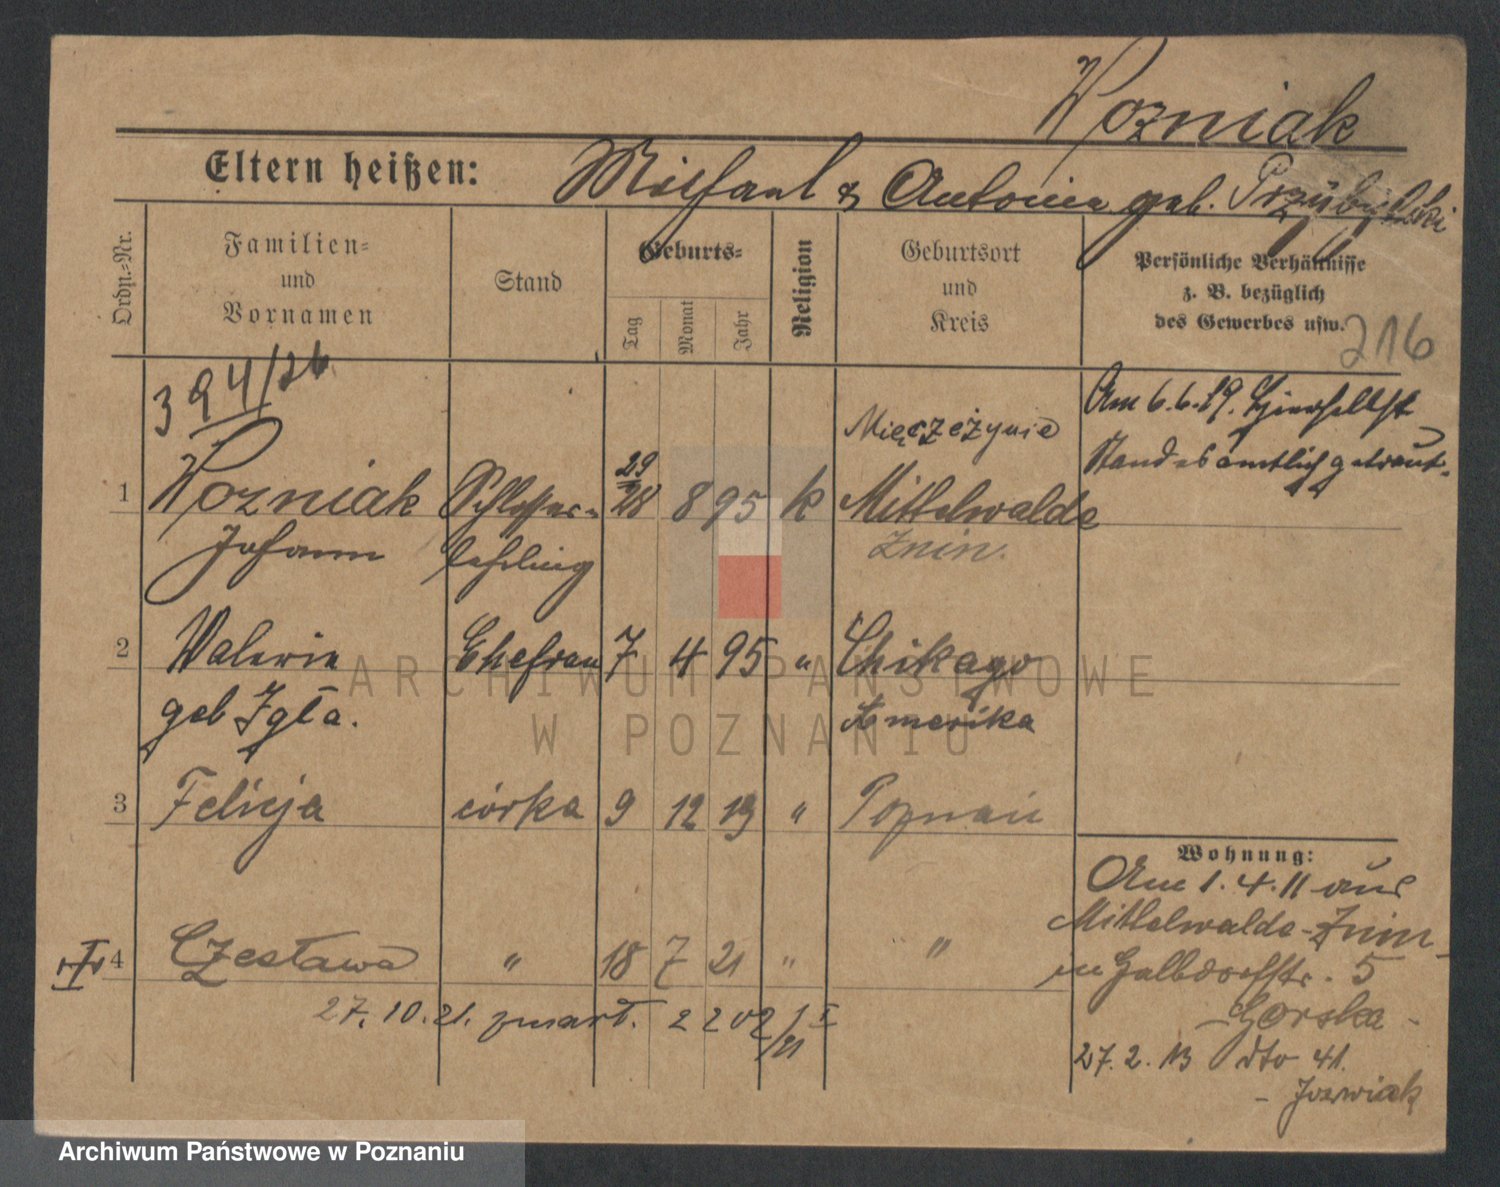 Wozniak
Eltern heißen: Michael & Antonie geb. Przybylski
Ordn.-Nr.
Familien-
und
Vornamen
Stand
Geburts-
Tag
Monat
Jahr
Religion
Geburtsort
und
Kreis
Persönliche Verhältnisse
z. B. bezüglich
des Gewerbes usw.
216
394/26
Am 6.6.19. hierselbst
standesamtlich getraut.
Mięczeżynie
29
1 Wozniak Schlosser- 28 8 95 k Mittelwalde
Johann lehrling Znin.
2 Walerie Ehefrau 7 4 95 " Chikago
geb Igla. Amerika
3 Felicja córka 9 12 19 " Poznań
4 Czesława " 18 7 21 " "
27.10.21. zmarł. 2202/21 I
Wohnung:
Am 1.4.11 aus
Mittelwalde-Znin
n Halbdorfstr. 5
- Gorska -
27.2.13 dto 41.
- Jozwiak
ARCHIWUM PAŃSTWOWE
W POZNANIU
Archiwum Państwowe w Poznaniu